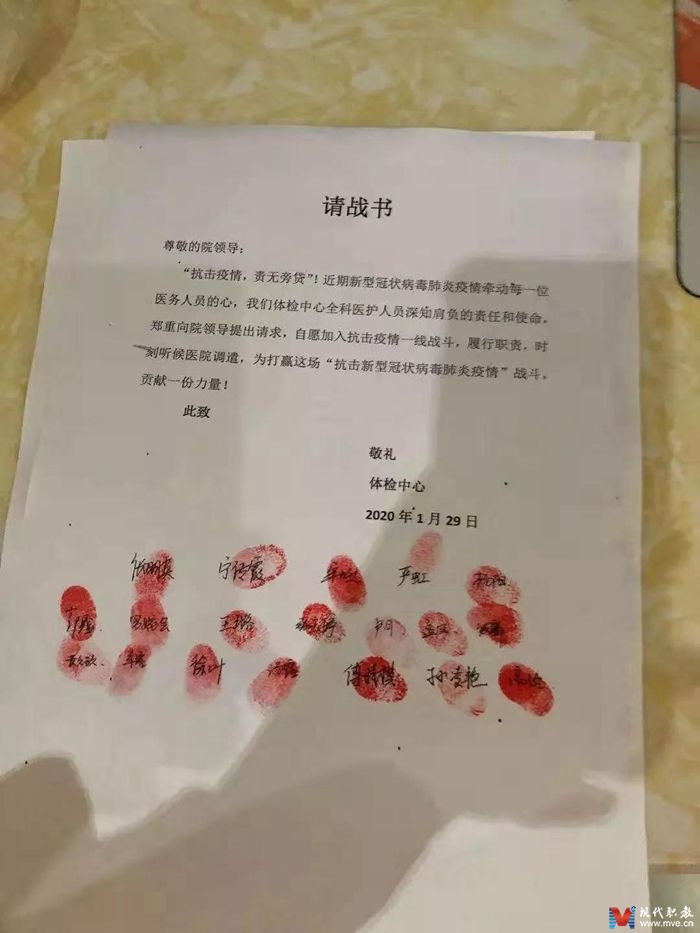 请战书
尊敬的院领导：
“抗击疫情，责无旁贷”！近期新型冠状病毒肺炎疫情牵动每一位
医务人员的心，我们体检中心全科医护人员深知肩负的责任和使命，
郑重向院领导提出请求，自愿加入抗击疫情一线战斗，履行职责，时
刻听候医院调遣，为打赢这场“抗击新型冠状病毒肺炎疫情”战斗，
贡献一份力量！
此致
敬礼
体检中心
2020年1月29日
严虹
徐叶
孙凌艳
现代职教
www.mve.cn